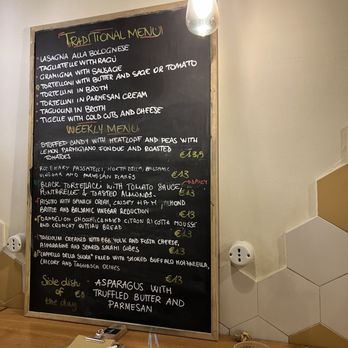 "TRADITIONAL MENU
LASAGNA ALLA BOLOGNESE
TAGLIATELLE WITH RAGÙ
GRAMIGNA WITH SAUSAGE
TORTELLONI WITH BUTTER AND SAGE OR TOMATO
TORTELLINI IN BROTH
TORTELLINI IN PARMESAN CREAM
TAGLIOLINI IN BROTH
TIGELLE WITH COLD CUTS AND CHEESE
WEEKLY MENU
STUFFED WITH MEATLOAF AND PEAS WITH
LEMON PARMIGIANO FONDUE AND ROASTED
TOMATOES €13,5
ROSEMARY PASSATELLI, MORTADELLA, BALSAMIC
VINEGAR AND PARMESAN FLAKES €13
BLACK WITH TOMATO SAUCE,
& TOASTED ALMONDS. €13
RISOTTO WITH SPINACH CREAM, CRISPY HAM, ALMOND
BRITTLE AND BALSAMIC VINEGAR REDUCTION €13
GNOCCHI, CANDIED CITRON RICOTTA MOUSSE
AND CRUNCHY BREAD €13
CREAMED WITH EGG YOLK AND CHEESE,
ASPARAGUS AND CUBES €13
"CAPPELLO DELLA SUORA" FILLED WITH SMOKED BUFFALO MOZZARELLA,
CHICORY AND TAGGIASCA OLIVES €13
Side dish - ASPARAGUS WITH
of TRUFFLED BUTTER AND
the day PARMESAN